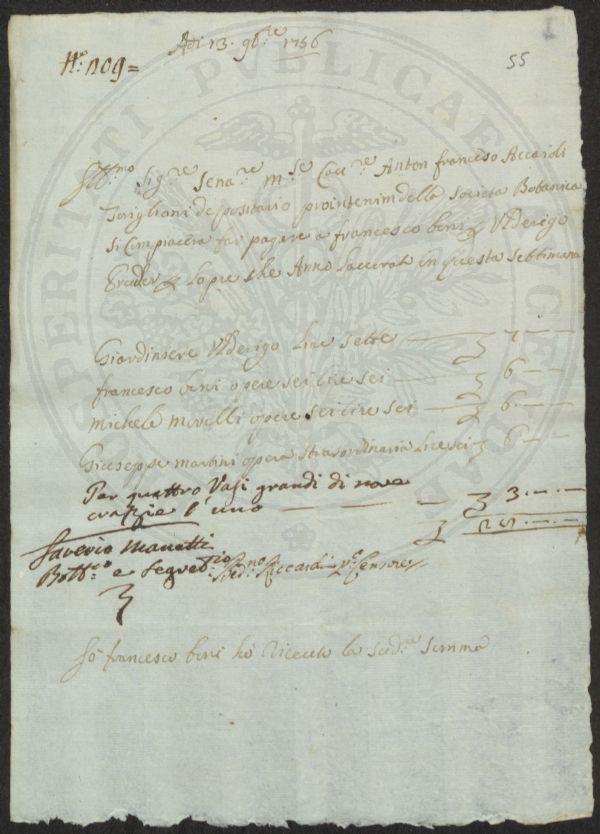 Adi 13. 9bre 1756
55
No: 209=
Illmo Sigre Senare Mse Cave Anton francesco Accaioli
Torigliani depositario prointenim della Società Botanica
Si Compiaccia far pagare a francesco beni Vlderigo
Lopre che Anno laccirat in questa Settimana
Giardiniere Vlderigo Lire Sette 7
francesco beni opere sei lire sei 6
Michele Morelli opere sei lire sei 6
Giuseppe Martini opera Strasordinaria Lire sei 6
Per quattro Vasi grandi di nove
crazie l'uno 3
25
Saverio Manetti
Bottco e Segretrio
Riccardi Censore
Io francesco beni hò Riceuto la Sudta Somma
PROSPERITATI PVBLICAE AVGENDAE